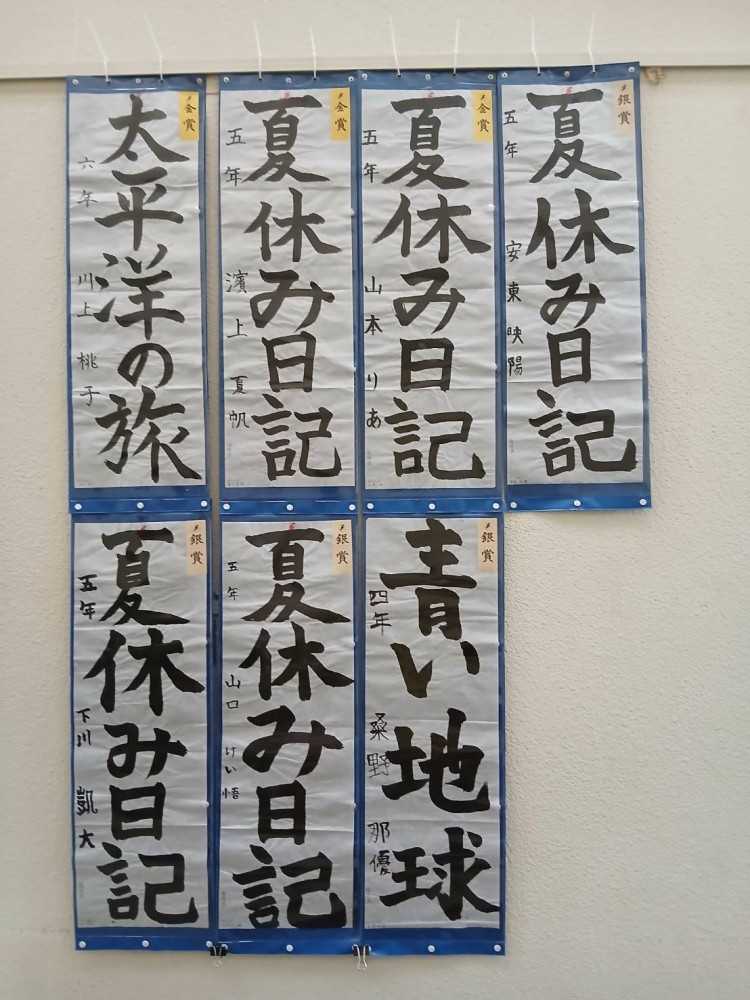 金賞
太平洋の旅
六年
川上桃子
金賞
夏休み日記
五年
濱上夏帆
金賞
夏休み日記
五年
山本りあ
銀賞
夏休み日記
五年
安東映陽
銀賞
夏休み日記
五年
下川凱大
銀賞
夏休み日記
五年
山口けい悟
銀賞
青い地球
四年
桑野那優